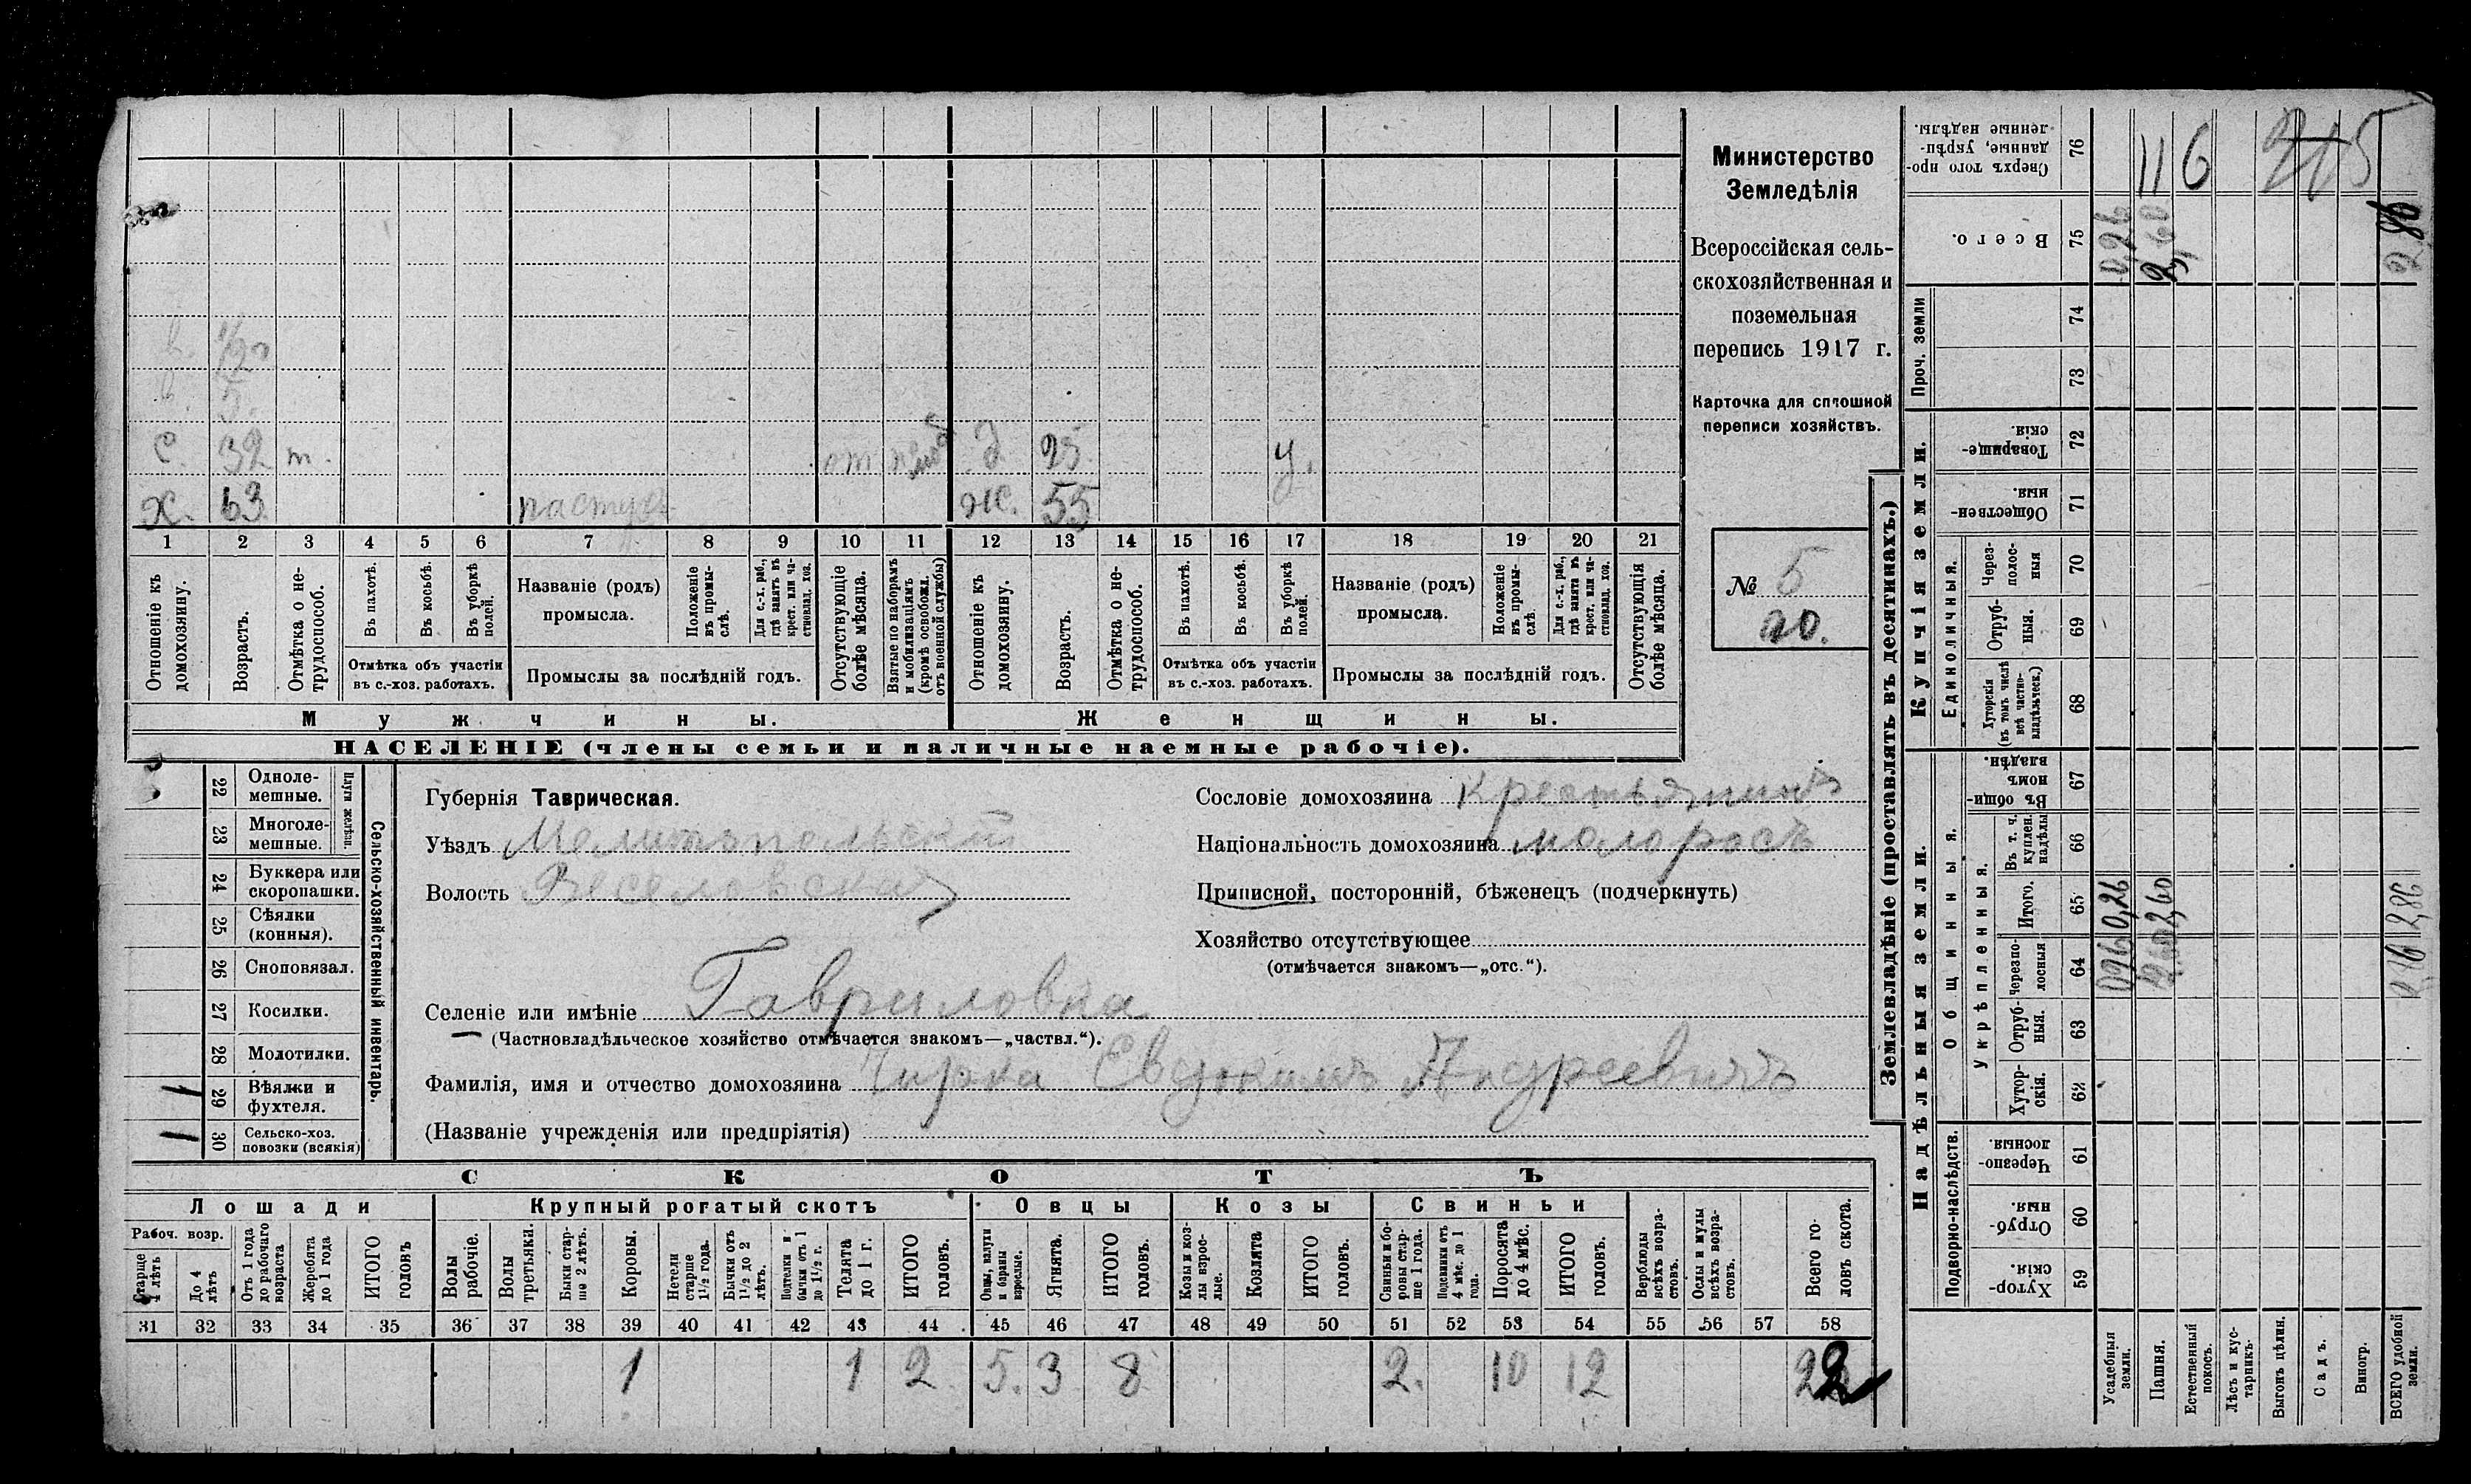 Министерство
Земледѣлія
Всероссійская сель-
скохозяйственная и
поземельная
перепись 1917 г.
Карточка для сплошной
переписи хозяйствъ.
№ 5
20.
в. 1/2
в. 5.
с. 32 т. от Д 25. у.
х. 63. пастух ж. 55
1 2 3 4 5 6 7 8 9 10 11 12 13 14 15 16 17 18 19 20 21
Отношеніе къ домохозяину.
Возрастъ.
Отмѣтка о не-трудоспособ.
Въ пахотѣ.
Въ косьбѣ.
Въ уборкѣ полей.
Отмѣтка объ участіи
въ с.-хоз. работахъ.
Названіе (родъ)
промысла.
Положеніе въ промы-слѣ.
Для с.-х. раб., гдѣ занятъ въ крест. или ча-стновлад. хоз.
Промыслы за послѣдній годъ.
Отсутствующіе болѣе мѣсяца.
Взятые по наборамъ и мобилизаціямъ (кромѣ освобожд. отъ военной службы)
Отношеніе къ домохозяину.
Возрастъ.
Отмѣтка о не-трудоспособ.
Въ пахотѣ.
Въ косьбѣ.
Въ уборкѣ полей.
Отмѣтка объ участіи
въ с.-хоз. работахъ.
Названіе (родъ)
промысла.
Положеніе въ промы-слѣ.
Для с.-х. раб., гдѣ занята въ крест. или ча-стновлад. хоз.
Промыслы за послѣдній годъ.
Отсутствующія болѣе мѣсяца.
Мужчины.
Женщины.
НАСЕЛЕНІЕ (члены семьи и наличные наемные рабочіе).
Сельско-хозяйственный инвентарь.
Плуги желѣзн.
22 Одноле-мешные.
23 Многоле-мешные.
24 Буккера или скоропашки.
25 Сѣялки (конныя).
26 Сноповязал.
27 Косилки.
28 Молотилки.
29 Вѣялки и фухтеля. 1
30 Сельско-хоз. повозки (всякія) 1
Губернія Таврическая.
Уѣздъ Мелитопольский
Волость Веселовская
Селеніе или имѣніе Гавриловка
(Частновладѣльческое хозяйство отмѣчается знакомъ—„частвл.“).
Фамилія, имя и отчество домохозяина Чирка Евдокимъ Андреевичъ
(Названіе учрежденія или предпріятія)
Сословіе домохозяина крестьянинъ
Національность домохозяина малоросъ
Приписной, посторонній, бѣженецъ (подчеркнуть)
Хозяйство отсутствующее
(отмѣчается знакомъ—„отс.“).
СКОТЪ
Лошади
Крупный рогатый скотъ
Овцы
Козы
Свиньи
Рабоч. возр.
Старше 4 лѣтъ
До 4 лѣтъ
Отъ 1 года до рабочаго возраста
Жеребята до 1 года
ИТОГО головъ
Волы рабочіе.
Волы третьяки.
Быки стар-ше 2 лѣтъ.
Коровы.
Нетели старше 1½ года.
Бычки отъ 1½ до 2 лѣтъ.
Подтелки и бычки отъ 1 до 1½ г.
Телята до 1 г.
ИТОГО головъ.
Овцы, валухи и бараны взрослые.
Ягнята.
ИТОГО головъ.
Козы и коз-лы взрос-лые.
Козлята
ИТОГО головъ.
Свиньи и бо-ровы стар-ше 1 года.
Подсвинки отъ 4 мѣс. до 1 года.
Поросята до 4 мѣс.
ИТОГО головъ.
Верблюды всѣхъ возра-стовъ.
Ослы и мулы всѣхъ возра-стовъ.
Всего го-ловъ скота.
31 32 33 34 35 36 37 38 39 40 41 42 43 44 45 46 47 48 49 50 51 52 53 54 55 56 57 58
1 1 2 5. 3 8 2. 10 12 22
Землевладѣніе (проставлять въ десятинахъ.)
Надѣльныя земли.
Купчія земли.
Проч. земли
Подворно-наслѣдств.
Общинныя.
Укрѣпленныя.
Единоличныя.
76 Сверхъ того про-данные, укрѣп-ленные надѣлы. 116 215
75 Всего. 0,26 2,60 2,86
74
73
72 Товарище-скія.
71 Обществен-ныя.
70 Через-полос-ныя
69 Отруб-ныя.
68 Хуторскія (въ томъ числѣ всѣ частно-владѣльческ.)
67 Въ общи-номъ владѣн.
66 Въ т. ч. куплен. надѣлы
65 Итого. 0,26 2,60 2,86
64 Черезпо-лосныя
63 Отруб-ныя.
62 Хутор-скія.
61 Черезпо-лосныя.
60 Отруб-ныя.
59 Хутор-скія.
Усадебныя земли.
Пашня.
Естественный покосъ.
Лѣсъ и кус-тарникъ.
Выгонъ цѣлин.
Садъ.
Виногр.
ВСЕГО удобной земли.